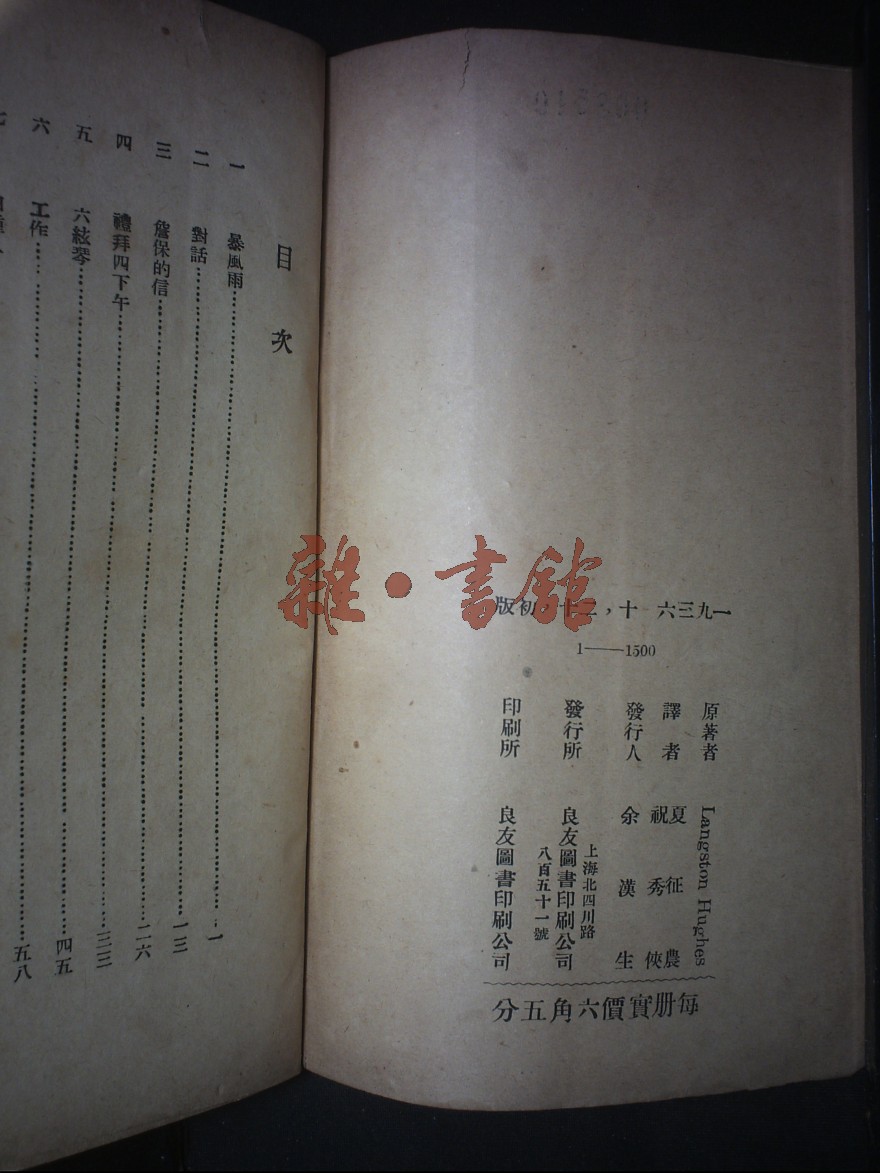 一九三六 十，二十，初版
1——1500
原著者 Langston Hughes
譯者 夏征農
祝秀俠
發行人 余漢生
發行所 良友圖書印刷公司
上海北四川路
八百五十一號
印刷所 良友圖書印刷公司
每册實價六角五分
目次
一 暴風雨 一
二 對話 一三
三 詹保的信 二六
四 禮拜四下午 三三
五 六絃琴 四五
六 工作 五八
雜·書館